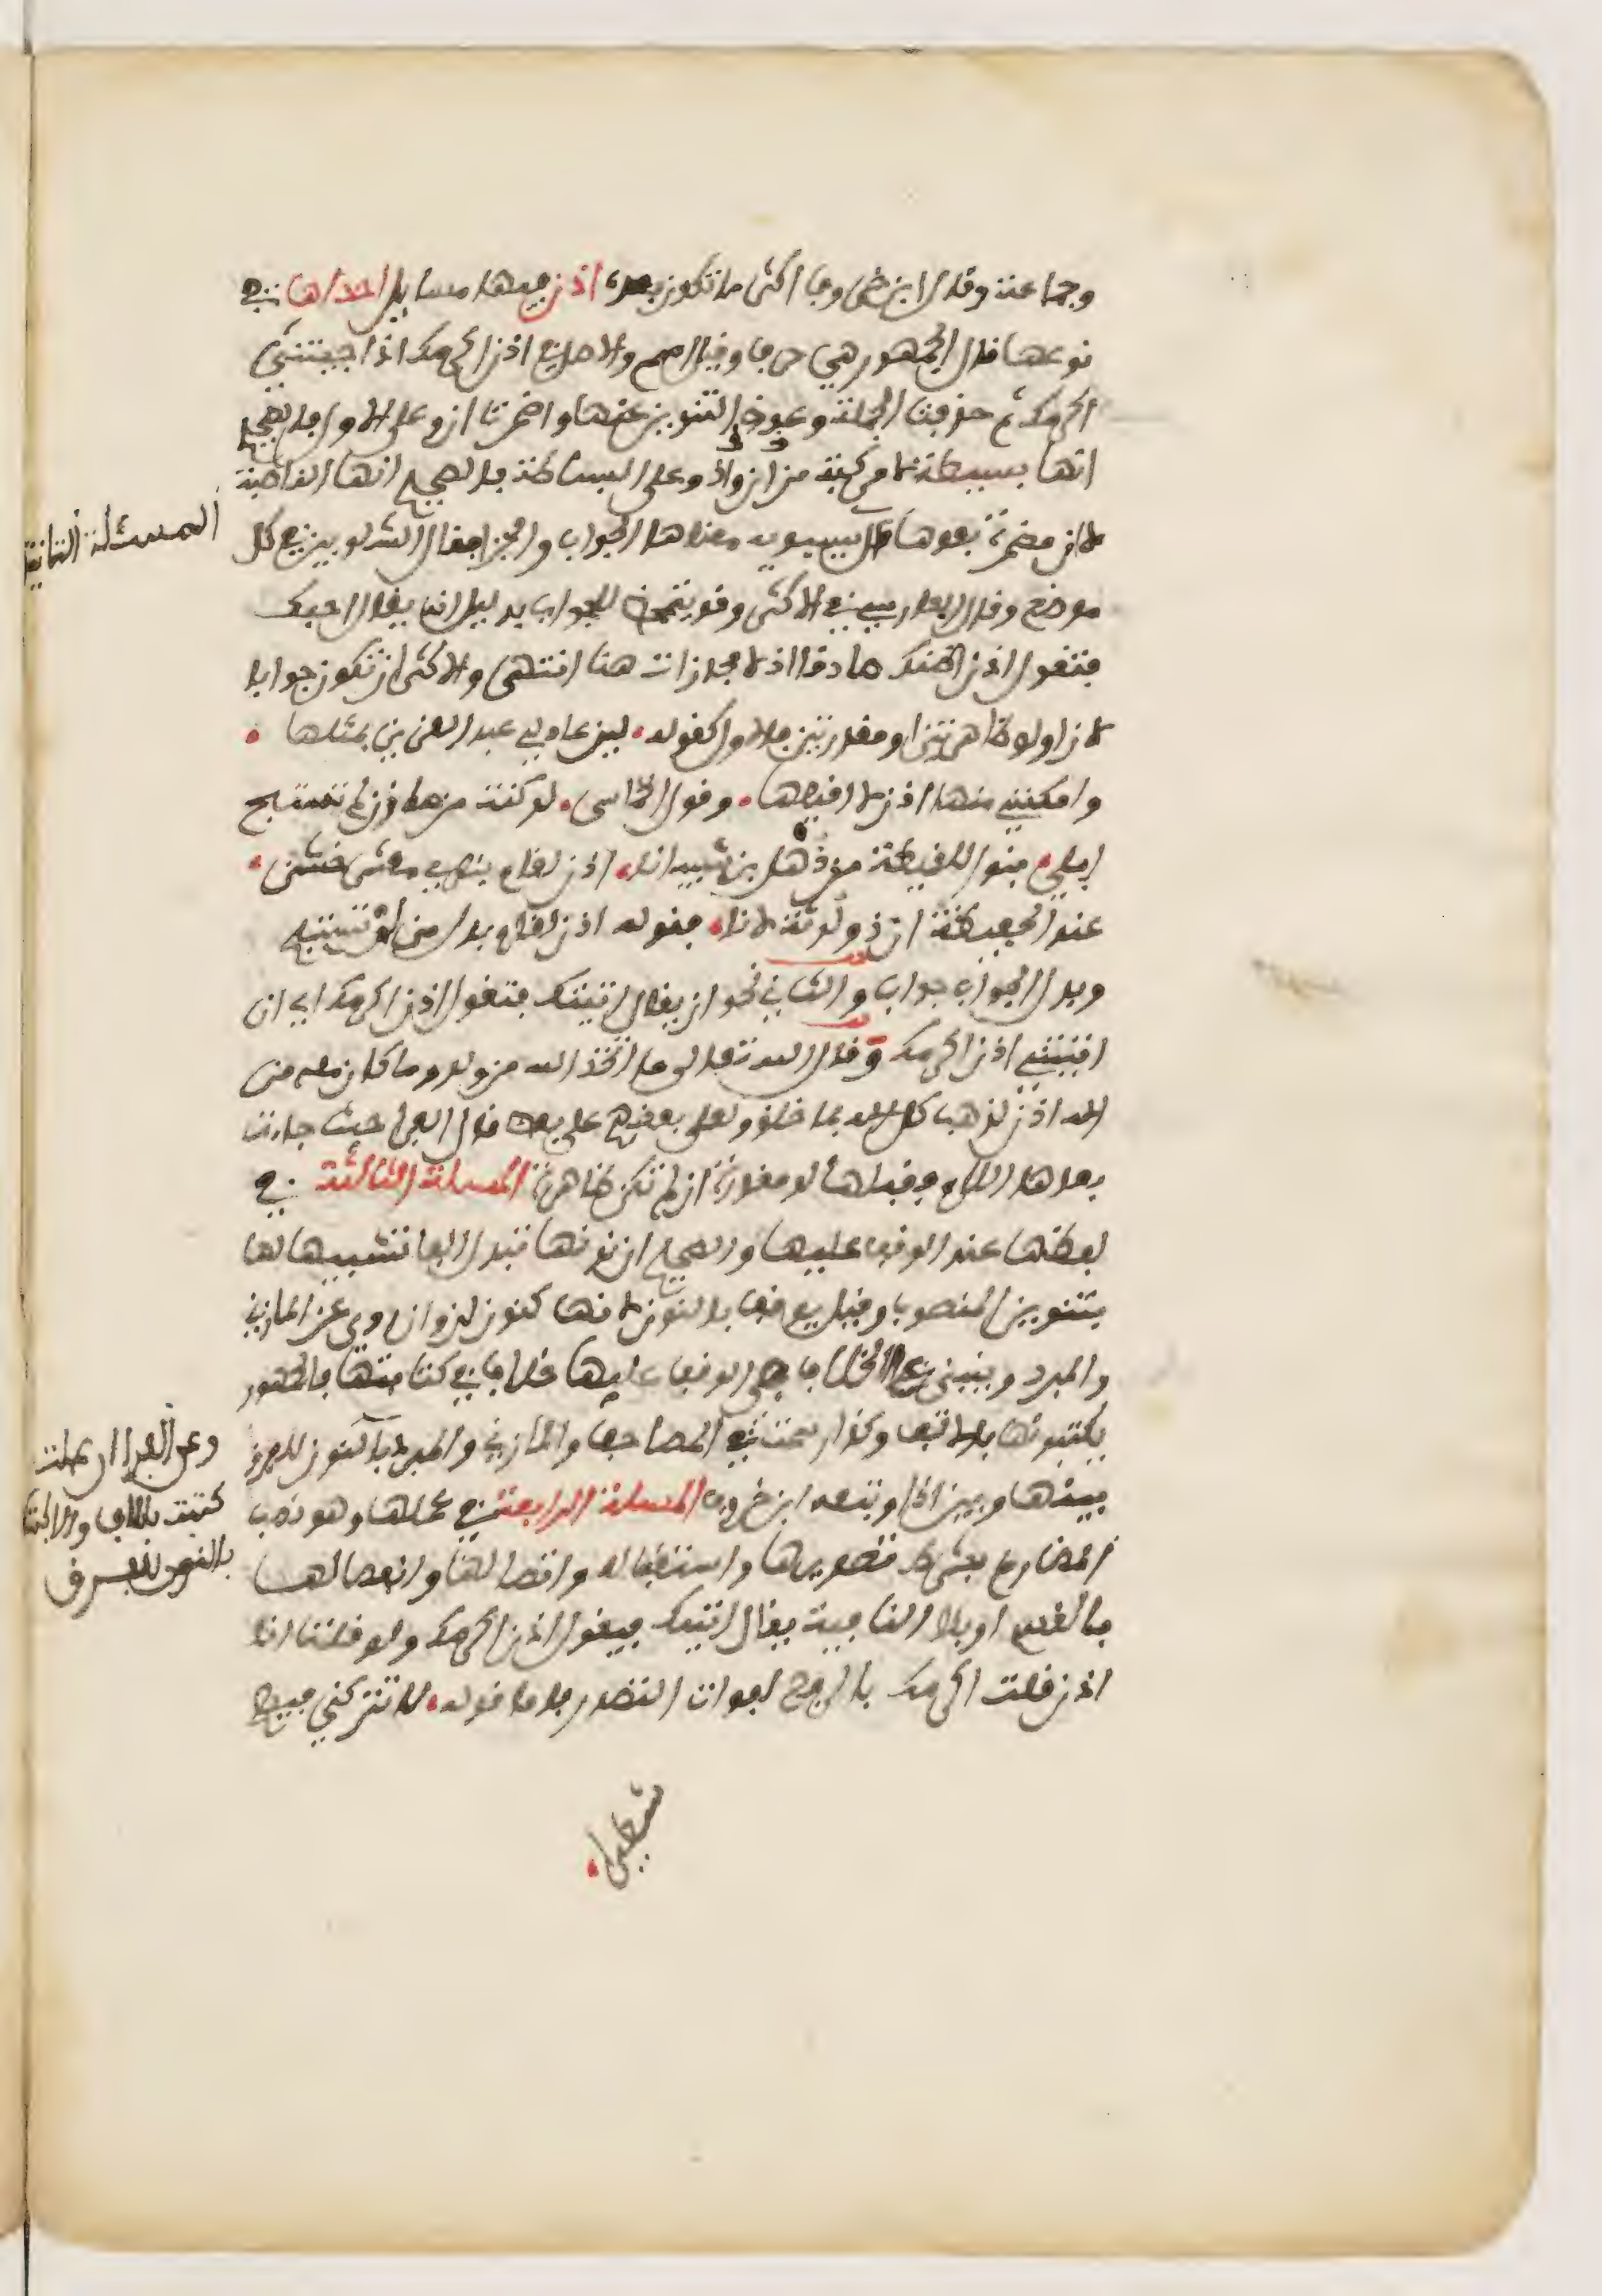 وجماعة وقال ابن خروف اكثر ما تكون بعده اذن فيها مسايل احداها في
نوعها قال الجمهور هي حرف وقيل اسم والاصل في اذن اكرمك اذا جيتني
اكرمك ثم حذفت الجملة وعوض التنوين عنها واضمرت ان وعلى الاول فالصحيح
انها بسيطة لا مركبة من ان واذ وعلى البساطة فالصحيح انها الناصبة
لا ان مضمرة بعدها قال سيبويه معناها الجواب والجزا فقال الشلوبين في كل
موضع وقال الفارسي في الاكثر وقد يتمحض للجواب بدليل انه يقال احبك
فتقول اذن اظنك صادقا اذ لا مجازات هنا انتهى والاكثر ان تكون جوابا
لان اولو ظاهرتين او مقدرتين فالاول كقوله لين عاد لي عبد العزيز بمثلها
وامكنني منها اذن لا اقيلها وقول الحماسي لو كنت من مازن لم تستبح
ابلي بنو اللقيطة من ذهل بن شيبانا اذن لقام بنصري معشر خشن
عند الحفيظة ان ذو لوثة لانا فقوله اذن لقام بدل من لم تستبح
وبدل الجواب جواب والثاني نحو ان يقال اتيتك فتقول اذن اكرمك اي ان
اتيتني اذن اكرمك وقال الله تعالى ما اتخذ الله من ولد وما كان معه من
اله اذن لذهب كل اله بما خلق ولعلى بعضهم على بعض قال الفرا حيث جات
بعدها اللام فقبلها لو مقدرة ان لم تكن ظاهرة المسلة الثالثة في
لفظها عند الوقف عليها والصحيح ان نونها تبدل الفا تشبيها لها
بتنوين المنصوب وقيل يوقف بالنون لانها كنون لن وان روي عن المازني
والمبرد وينبني على الخلاف في الوقف عليها خلاف في كتابتها فالجمهور
يكتبونها بالالف وكذا رسمت في المصاحف والمازني والمبرد بالنون للفرق
بينها وبين اذا وتبعه ابن خروف المسلة الرابعة في عملها وهو نصب
المضارع بشرط تصديرها واستقباله واتصالها وانفصالها
بالقسم او بلا النافية يقال اتيتك فيقول اذن اكرمك ولو قلت انا
اذن قلت اكرمك بالرفع لفوات التصدر فاما قوله لا تتركني فيهم
شطيرا
المسئلة الثانية
وعن الفرا ان عملت
كتبت بالالف والا كتبت
بالنون للفرق